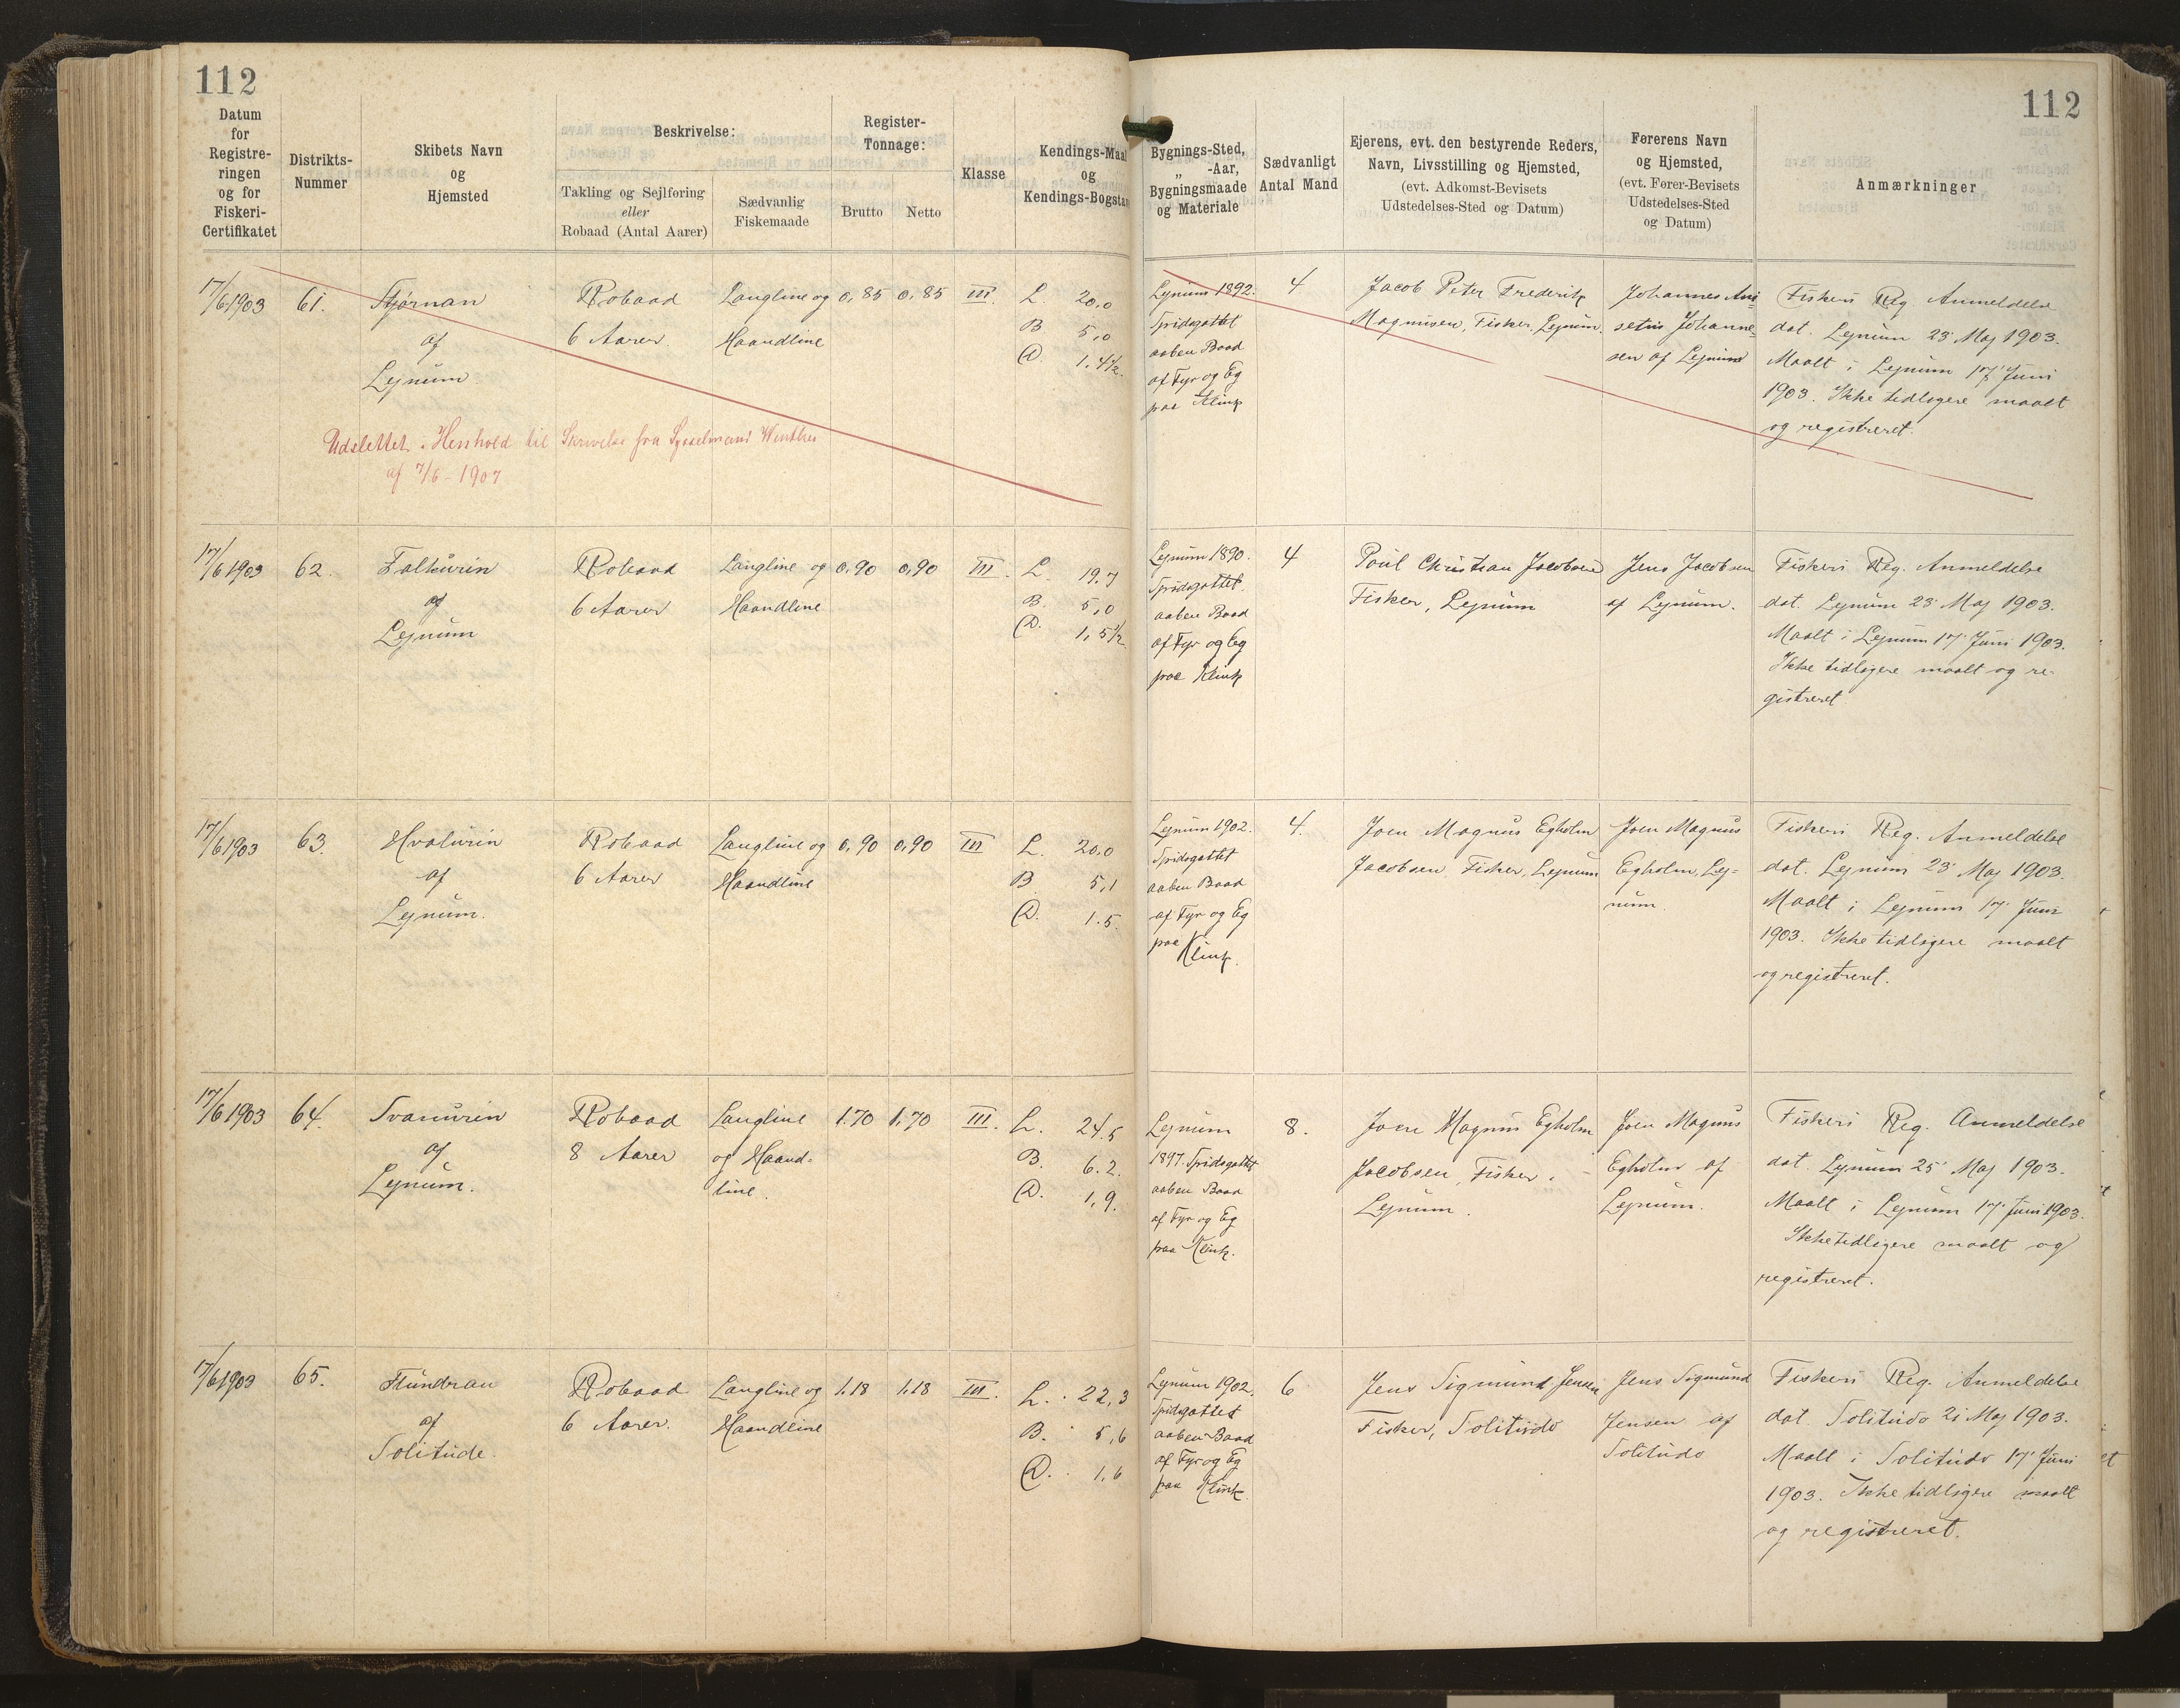 112
112
Datum
for
Registre-
ringen
og for
Fiskeri-
Certifikatet
Distrikts-
Nummer
Skibets Navn
og
Hjemsted
Beskrivelse:
Takling og Sejlføring
eller
Robaad (Antal Aarer)
Sædvanlig
Fiskemaade
Register-
Tonnage:
Brutto
Netto
Klasse
Kendings-Maal
og
Kendings-Bogstav
Bygnings-Sted,
„ -Aar,
Bygningsmaade
og Materiale
Sædvanligt
Antal Mand
Ejerens, evt. den bestyrende Reders,
Navn, Livsstilling og Hjemsted,
(evt. Adkomst-Bevisets
Udstedelses-Sted og Datum)
Førerens Navn
og Hjemsted,
(evt. Fører-Bevisets
Udstedelses-Sted
og Datum)
Anmærkninger
17/6 1903
61.
Stjørnan
af
Lejnum
Robaad
6 Aarer.
Langline og
Haandline
0,85
0,85
III
L. 20,0
B 5,0
D. 1,4½
Lejnum 1892.
Spidsgattet
aaben Baad
af Fyr og Eg
paa Klink
4
Jacob Peter Frederik
Magnusen, Fisker, Lejnum.
Johannes Ani-
setus Johanne-
sen af Lejnum
Fiskeri Reg Anmeldelse
dat. Lejnum 23' Maj 1903.
Maalt i Lejnum 17' Juni
1903. Ikke tidligere maalt
og registreret.
Udslettet i Henhold til Skrivelse fra Sysselmand Winther
af 7/6 - 1907
17/6 1903
62.
Falkurin
af
Lejnum
Robaad
6 Aarer
Langline og
Haandline
0,90
0,90
III.
L. 19,7
B. 5,0
D. 1,5½
Lejnum 1890.
Spidsgattet,
aaben Baad
af Fyr og Eg
paa Klink
4
Poul Christian Jacobsen
Fisker, Lejnum
Jens Jacobsen
af Lejnum.
Fiskeri Reg. Anmeldelse
dat. Lejnum 23' Maj 1903.
Maalt i Lejnum 17' Juni 1903.
Ikke tidligere maalt og re-
gistreret
17/6 1903
63.
Hvalurin
af
Lejnum.
Robaad
6 Aarer
Langline og
Haandline
0,90
0,90
III
L. 20,0
B 5,1
D. 1.5.
Lejnum 1902.
Spidsgattet
aaben Baad
af Fyr og Eg
paa Klink.
4.
Joen Magnus Egholm
Jacobsen, Fisker, Lejnum
Joen Magnus
Egholm, Lej-
num
Fiskeri Reg. Anmeldelse
dat. Lejnum 23' Maj 1903.
Maalt i Lejnum 17' Juni
1903. Ikke tidligere maalt
og registreret.
17/6 1903
64.
Svanurin
af
Lejnum.
Robaad
8 Aarer
Langline
og Haand-
line.
1.70
1,70
III.
L. 24.5
B. 6.2.
D. 1,9.
Lejnum
1897. Spidsgattet
aaben Baad
af Fyr og Eg
paa Klink.
8.
Joen Magnus Egholm
Jacobsen, Fisker.
Lejnum.
Joen Magnus
Egholm af
Lejnum.
Fiskeri Reg. Anmeldelse
dat. Lejnum 25' Maj 1903.
Maalt i Lejnum 17' Juni 1903.
Ikke tidligere maalt og
registreret.
17/6 1903
65.
Flundran
af
Solitude.
Robaad
6 Aarer.
Langline og
Haandline
1.18
1.18
III.
L. 22,3
B. 5,6
D. 1,6
Lejnum 1902.
Spidsgattet
aaben Baad
af Fyr og Eg
paa Klink.
6
Jens Sigmund Jensen
Fisker, Solitude
Jens Sigmund
Jensen af
Solitude
Fiskeri Reg. Anmeldelse
dat Solitude 21 Maj 1903.
Maalt i Solitude 17' Juni
1903. Ikke tidligere maalt
og registreret.